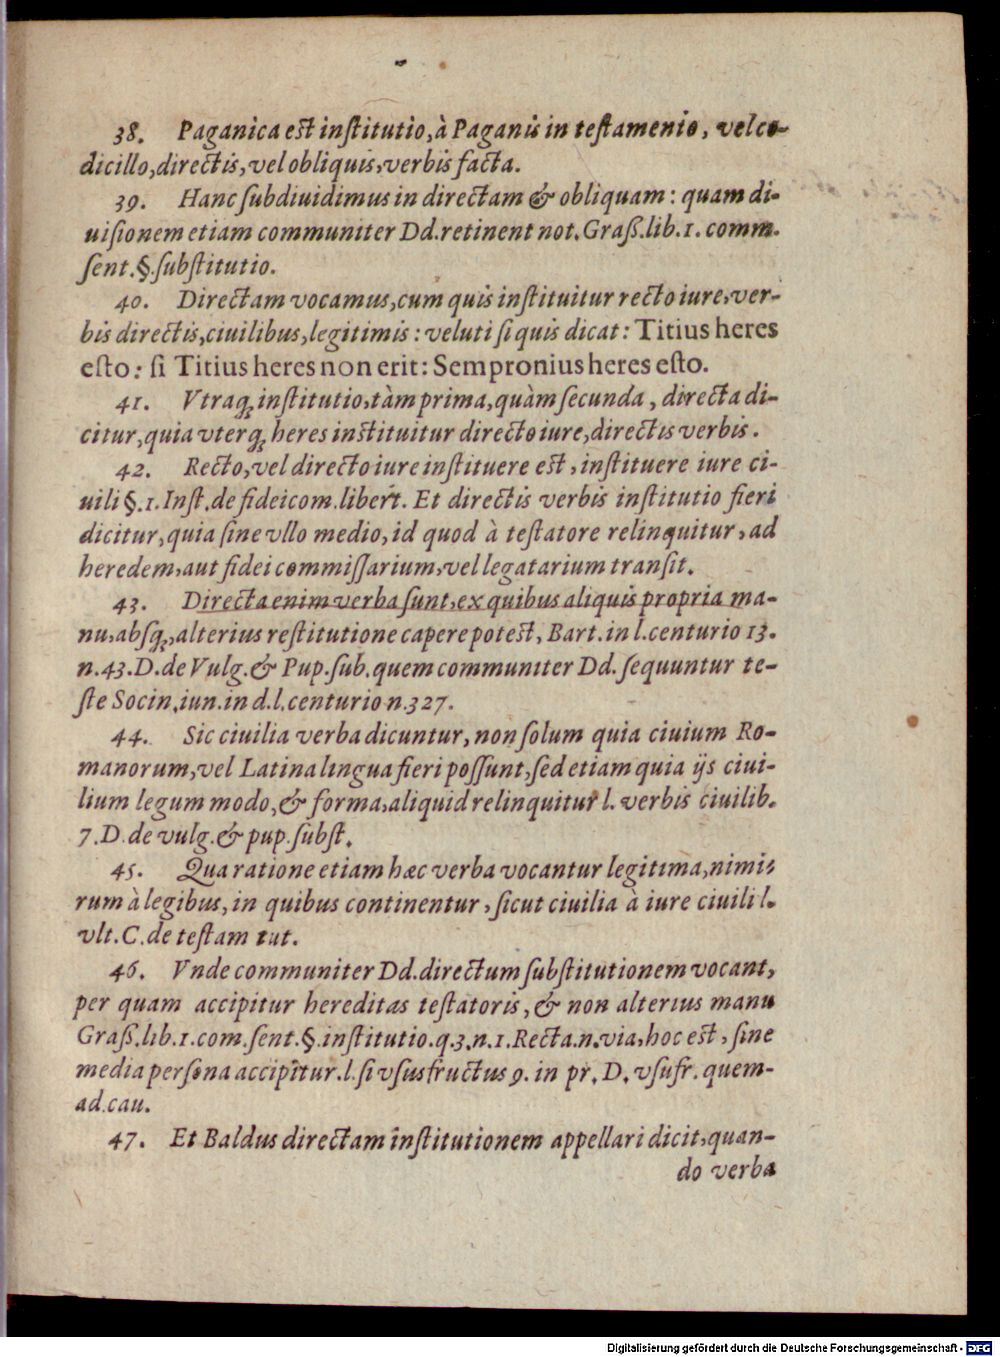 38. Paganica est institutio, à Paganis in testamenio, vel co-
dicillo, directis, vel obliquis, verbis facta.
39. Hanc subdiuidimus in directam & obliquam: quam di-
uisionem etiam communiter Dd. retinent not. Graß. lib. 1. comm.
sent. §. substitutio.
40. Directam vocamus, cum quis instituitur recto iure, ver-
bis directis, ciuilibus, legitimis: veluti si quis dicat: Titius heres
esto: si Titius heres non erit: Sempronius heres esto.
41. Vtraq; institutio, tàm prima, quàm secunda, directa di-
citur, quia vterq; heres instituitur directo iure, directis verbis.
42. Recto, vel directo iure instituere est, instituere iure ci-
uili §. 1. Inst. de fideicom. libert. Et directis verbis institutio fieri
dicitur, quia sine vllo medio, id quod à testatore relinquitur, ad
heredem, aut fidei commissarium, vel legatarium transit.
43. Directa enim verba sunt, ex quibus aliquis propria ma-
nu, absq;, alterius restitutione capere potest, Bart. in l. centurio 13.
n. 43. D. de Vulg. & Pup. sub. quem communiter Dd. sequuntur te-
ste Socin. iun. in d. l. centurio n. 327.
44. Sic ciuilia verba dicuntur, non solum quia ciuium Ro-
manorum, vel Latina lingua fieri possunt, sed etiam quia ijs ciui-
lium legum modo, & forma, aliquid relinquitur l. verbis ciuilib.
7. D. de vulg. & pup. subst.
45. Qua ratione etiam hæc verba vocantur legitima, nimi-
rum à legibus, in quibus continentur, sicut ciuilia à iure ciuili l.
vlt. C. de testam tut.
46. Vnde communiter Dd. directum substitutionem vocant,
per quam accipitur hereditas testatoris, & non alterius manu
Graß. lib. 1. com. sent. §. institutio. q. 3. n. 1. Recta. n. via, hoc est, sine
media persona accipitur. l. si vsusfructus 9. in pr. D. vsufr. quem-
ad. cau.
47. Et Baldus directam institutionem appellari dicit, quan-
do verba
Digitalisierung gefördert durch die Deutsche Forschungsgemeinschaft - DFG